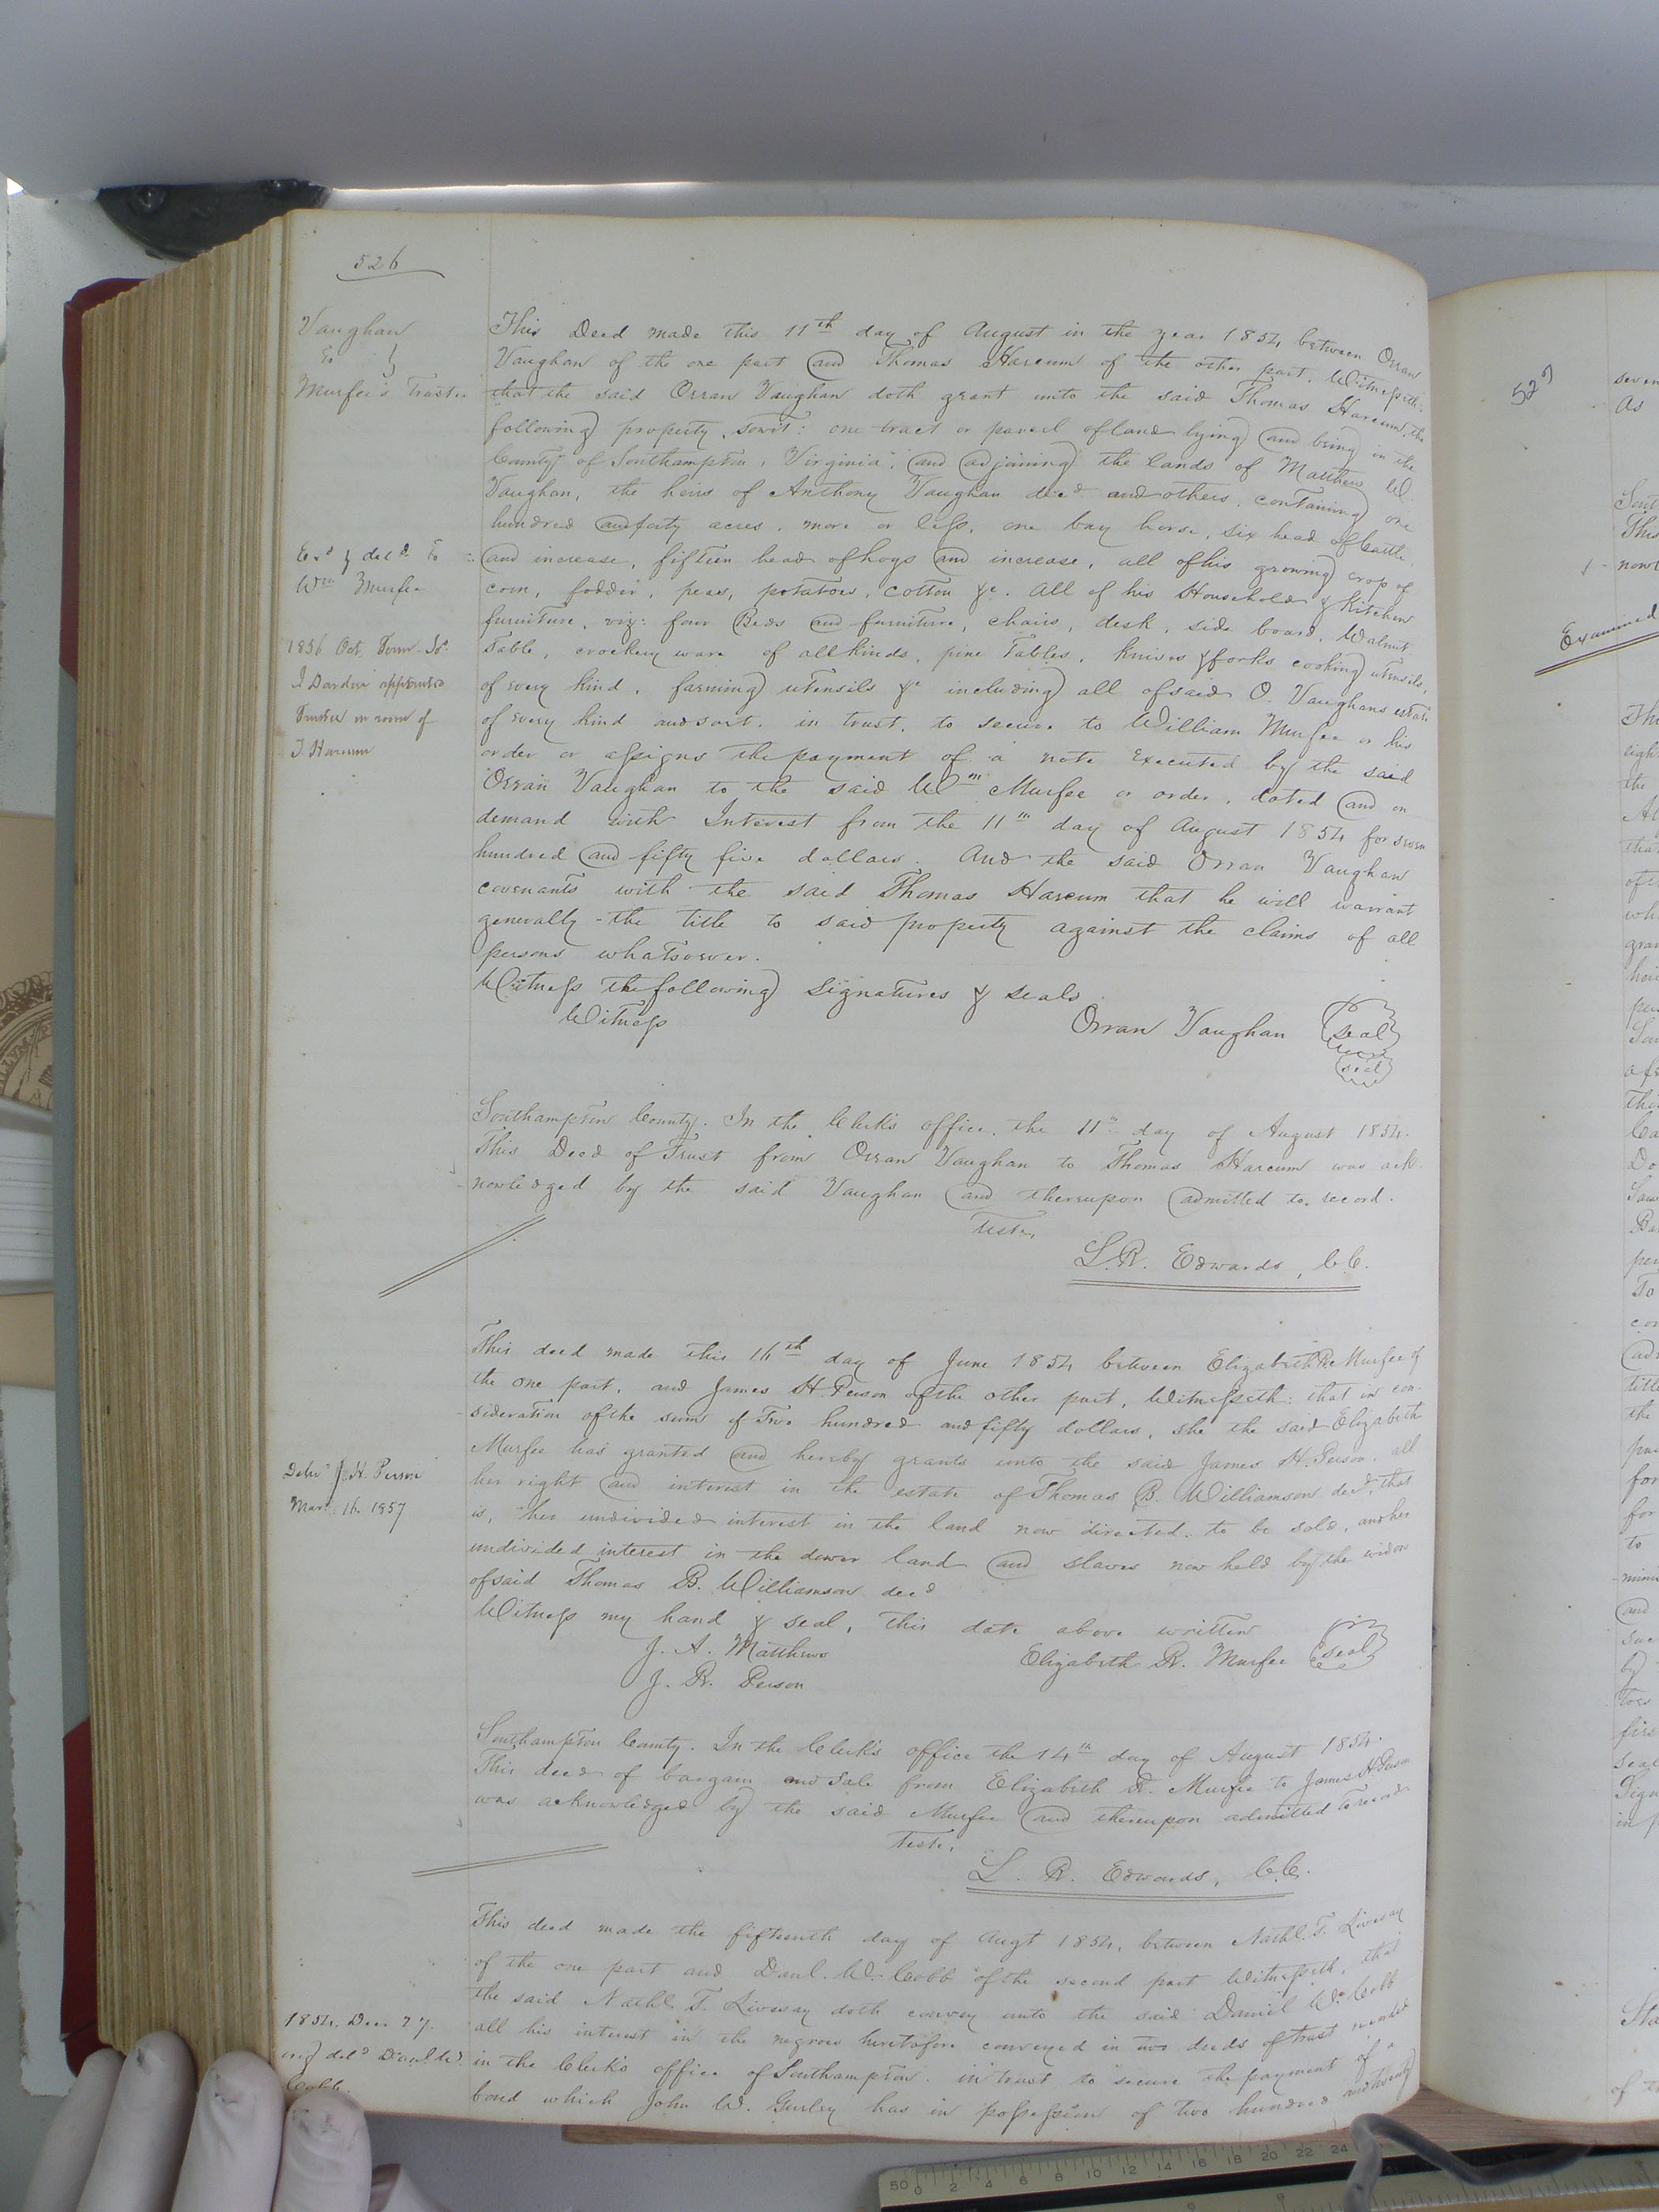 526
Vaughan
to }
Murfee's Trustee
This Deed made this 11th day of August in the year 1854 between Orran
Vaughan of the one part and Thomas Harcum of the other part, Witnesseth:
that the said Orran Vaughan doth grant unto the said Thomas Harcum, the
following property, towit: one tract or parcel of land lying and being in the
County of Southampton, Virginia, and adjoining the lands of Matthew W.
Vaughan, the heirs of Anthony Vaughan decd. and others, containing one
hundred and forty acres, more or less, one bay horse, six head of Cattle
and increase, fifteen head of hogs and increase, all of his growing crop of
corn, fodder, peas, potatoes, cotton &c. All of his Household & Kitchen
furniture, viz: four Beds and furniture, chairs, desk, side board, Walnut
Table, crockery ware of all kinds, pine Tables, knives & forks cooking utensils,
of every kind, farming utensils &c including all of said O. Vaughans estate
of every kind and sort. in trust, to secure to William Murfee or his
order or assigns the payment of a note executed by the said
Orran Vaughan to the said Wm Murfee or order, dated and on
demand with Interest from the 11th day of August 1854 for seven
hundred and fifty five dollars. And the said Orran Vaughan
covenants with the said Thomas Harcum that he will warrant
generally the title to said property against the claims of all
persons whatsoever.
Witness the following signatures & seals
Witness
Orran Vaughan seal
seal
Exd & deld. to
Wm Murfee
1856 Oct. Term
J Darden appointed
Trustee in room of
T. Harcum
Southampton County. In the Clerk's office, the 11th day of August 1854.
This Deed of Trust from Orran Vaughan to Thomas Harcum was ack
nowledged by the said Vaughan and thereupon admitted to record.
Teste,
L. R. Edwards, C.C.
This deed made this 16th day of June 1854 between Elizabeth R. Murfee of
the one part, and James H. Person of the other part, Witnesseth: that in con-
sideration of the sum of Two hundred and fifty dollars, she the said Elizabeth
Murfee has granted and hereby grants unto the said James H. Person, all
her right and interest in the estate of Thomas B. Williamson decd, that
is, her undivided interest in the land now directed to be sold, and her
undivided interest in the dower land and slaves now held by the widow
of said Thomas B. Williamson decd
Witness my hand & seal, this date above written
J. A. Matthews
J. R. Person
Elizabeth R. Murfee seal
J. H. Person
Mar. 16. 1857
Southampton County. In the Clerk's office the 14th day of August 1854.
This deed of bargain and sale from Elizabeth R. Murfee to James H. Person
was acknowledged by the said Murfee and thereupon admitted to record.
Teste,
L. R. Edwards, C.C.
This deed made the fifteenth day of Augt 1854, between Nathl. T. Livesay
of the one part and Danl. W. Cobb of the second part Witnesseth, that
the said Nathl. T. Livesay doth convey unto the said Daniel W. Cobb
all his interest in the negroes heretofore conveyed in two deeds of trust recorded
in the Clerk's office of Southampton. in trust to secure the payment of a
bond which John W. Gurley has in possession of two hundred and twenty
1854. Dec. 27.
deld Danl. W.
Cobb.
527
Examined